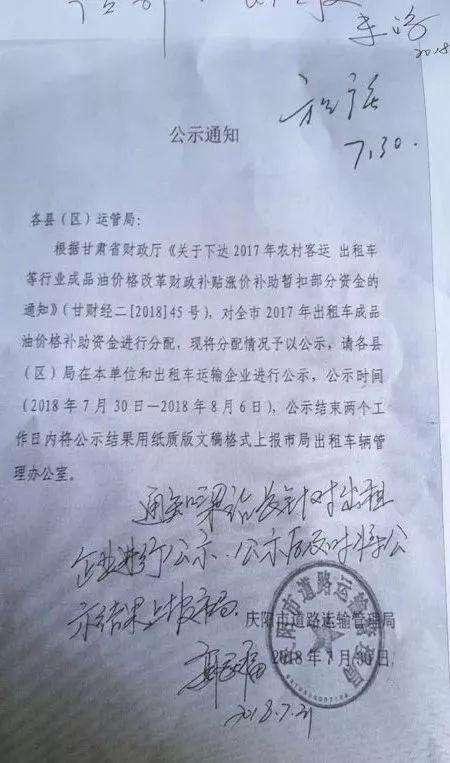 2018
7.30.
公示通知
各县（区）运管局：
根据甘肃省财政厅《关于下达 2017 年农村客运 出租车
等行业成品油价格改革财政补贴涨价补助暂扣部分资金的
通知》（甘财经二[2018]45 号），对全市 2017 年出租车成品
油价格补助资金进行分配，现将分配情况予以公示，请各县
（区）局在本单位和出租车运输企业进行公示，公示时间
（2018 年 7 月 30 日—2018 年 8 月 6 日），公示结束两个工
作日内将公示结果用纸质版文稿格式上报市局出租车辆管
理办公室。
通知梁站长针对出租
企业进行公示.公示后及时将公
示结果上报市局.
庆阳市道路运输管理局
庆阳市道路运输管理局
2018 年 7 月 30 日
2018.7.31